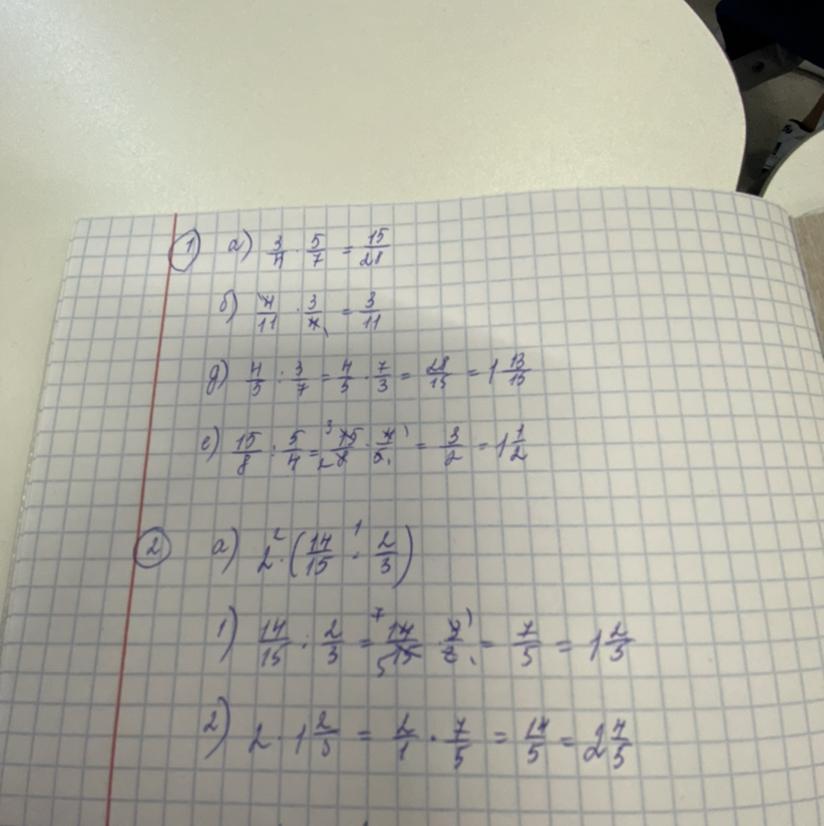 ① а) 3/4 · 5/7 = 15/28
б) 4/11 · 3/4 = 3/11
д) 4/5 : 3/7 = 4/5 · 7/3 = 28/15 = 1 13/15
е) 15/8 : 5/4 = 15/8 · 4/5 = 3/2 = 1 1/2
② а) 2 · (14/15 : 2/3)
1) 14/15 : 2/3 = 14/15 · 3/2 = 7/5 = 1 2/5
2) 2 · 1 2/5 = 2/1 · 7/5 = 14/5 = 2 4/5